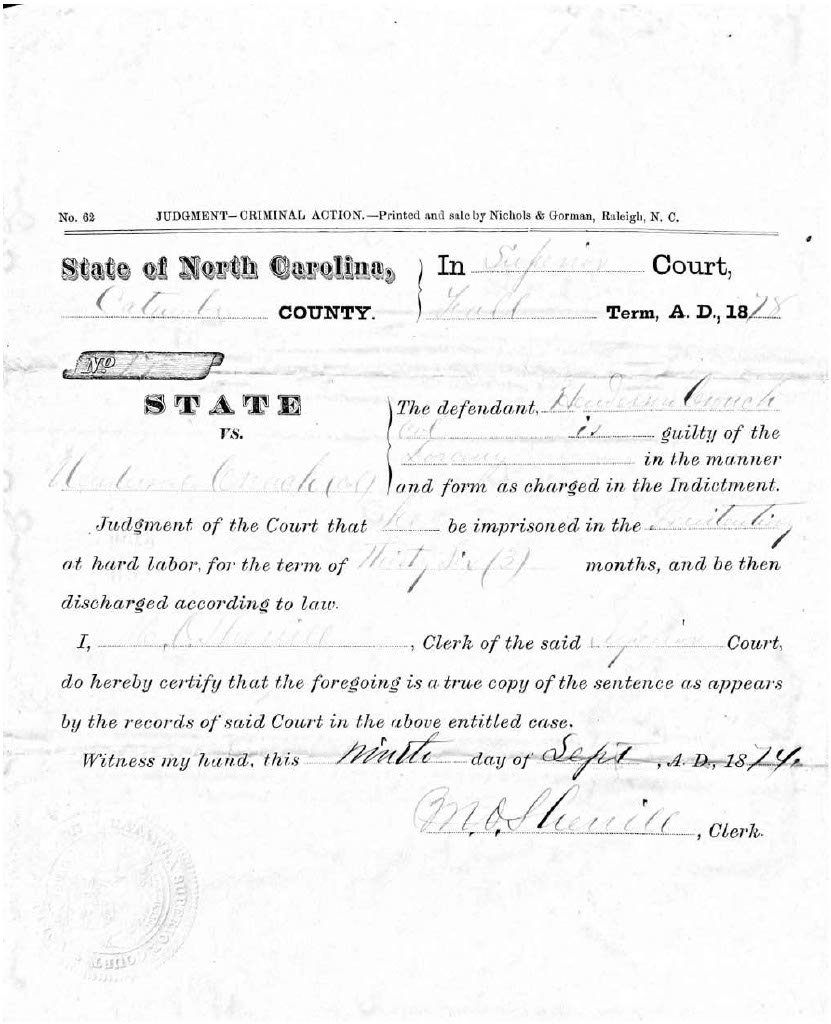 No. 62 JUDGMENT—CRIMINAL ACTION.—Printed and sale by Nichols & Gorman, Raleigh, N. C.
State of North Carolina, In Superior Court,
Catawba COUNTY. Fall Term, A. D., 1878
No
STATE The defendant, Henderson Crouch
VS. Col is guilty of the
Larceny in the manner
Henderson Crouch (col) and form as charged in the Indictment.
Judgment of the Court that he be imprisoned in the Penitentiary
at hard labor, for the term of Thirty Six (3) months, and be then
discharged according to law.
I, M. O. Sherrill, Clerk of the said Superior Court,
do hereby certify that the foregoing is a true copy of the sentence as appears
by the records of said Court in the above entitled case.
Witness my hand, this Ninth day of Sept, A. D., 187
M. O. Sherrill, Clerk.
CATAWBA SUPERIOR COURT